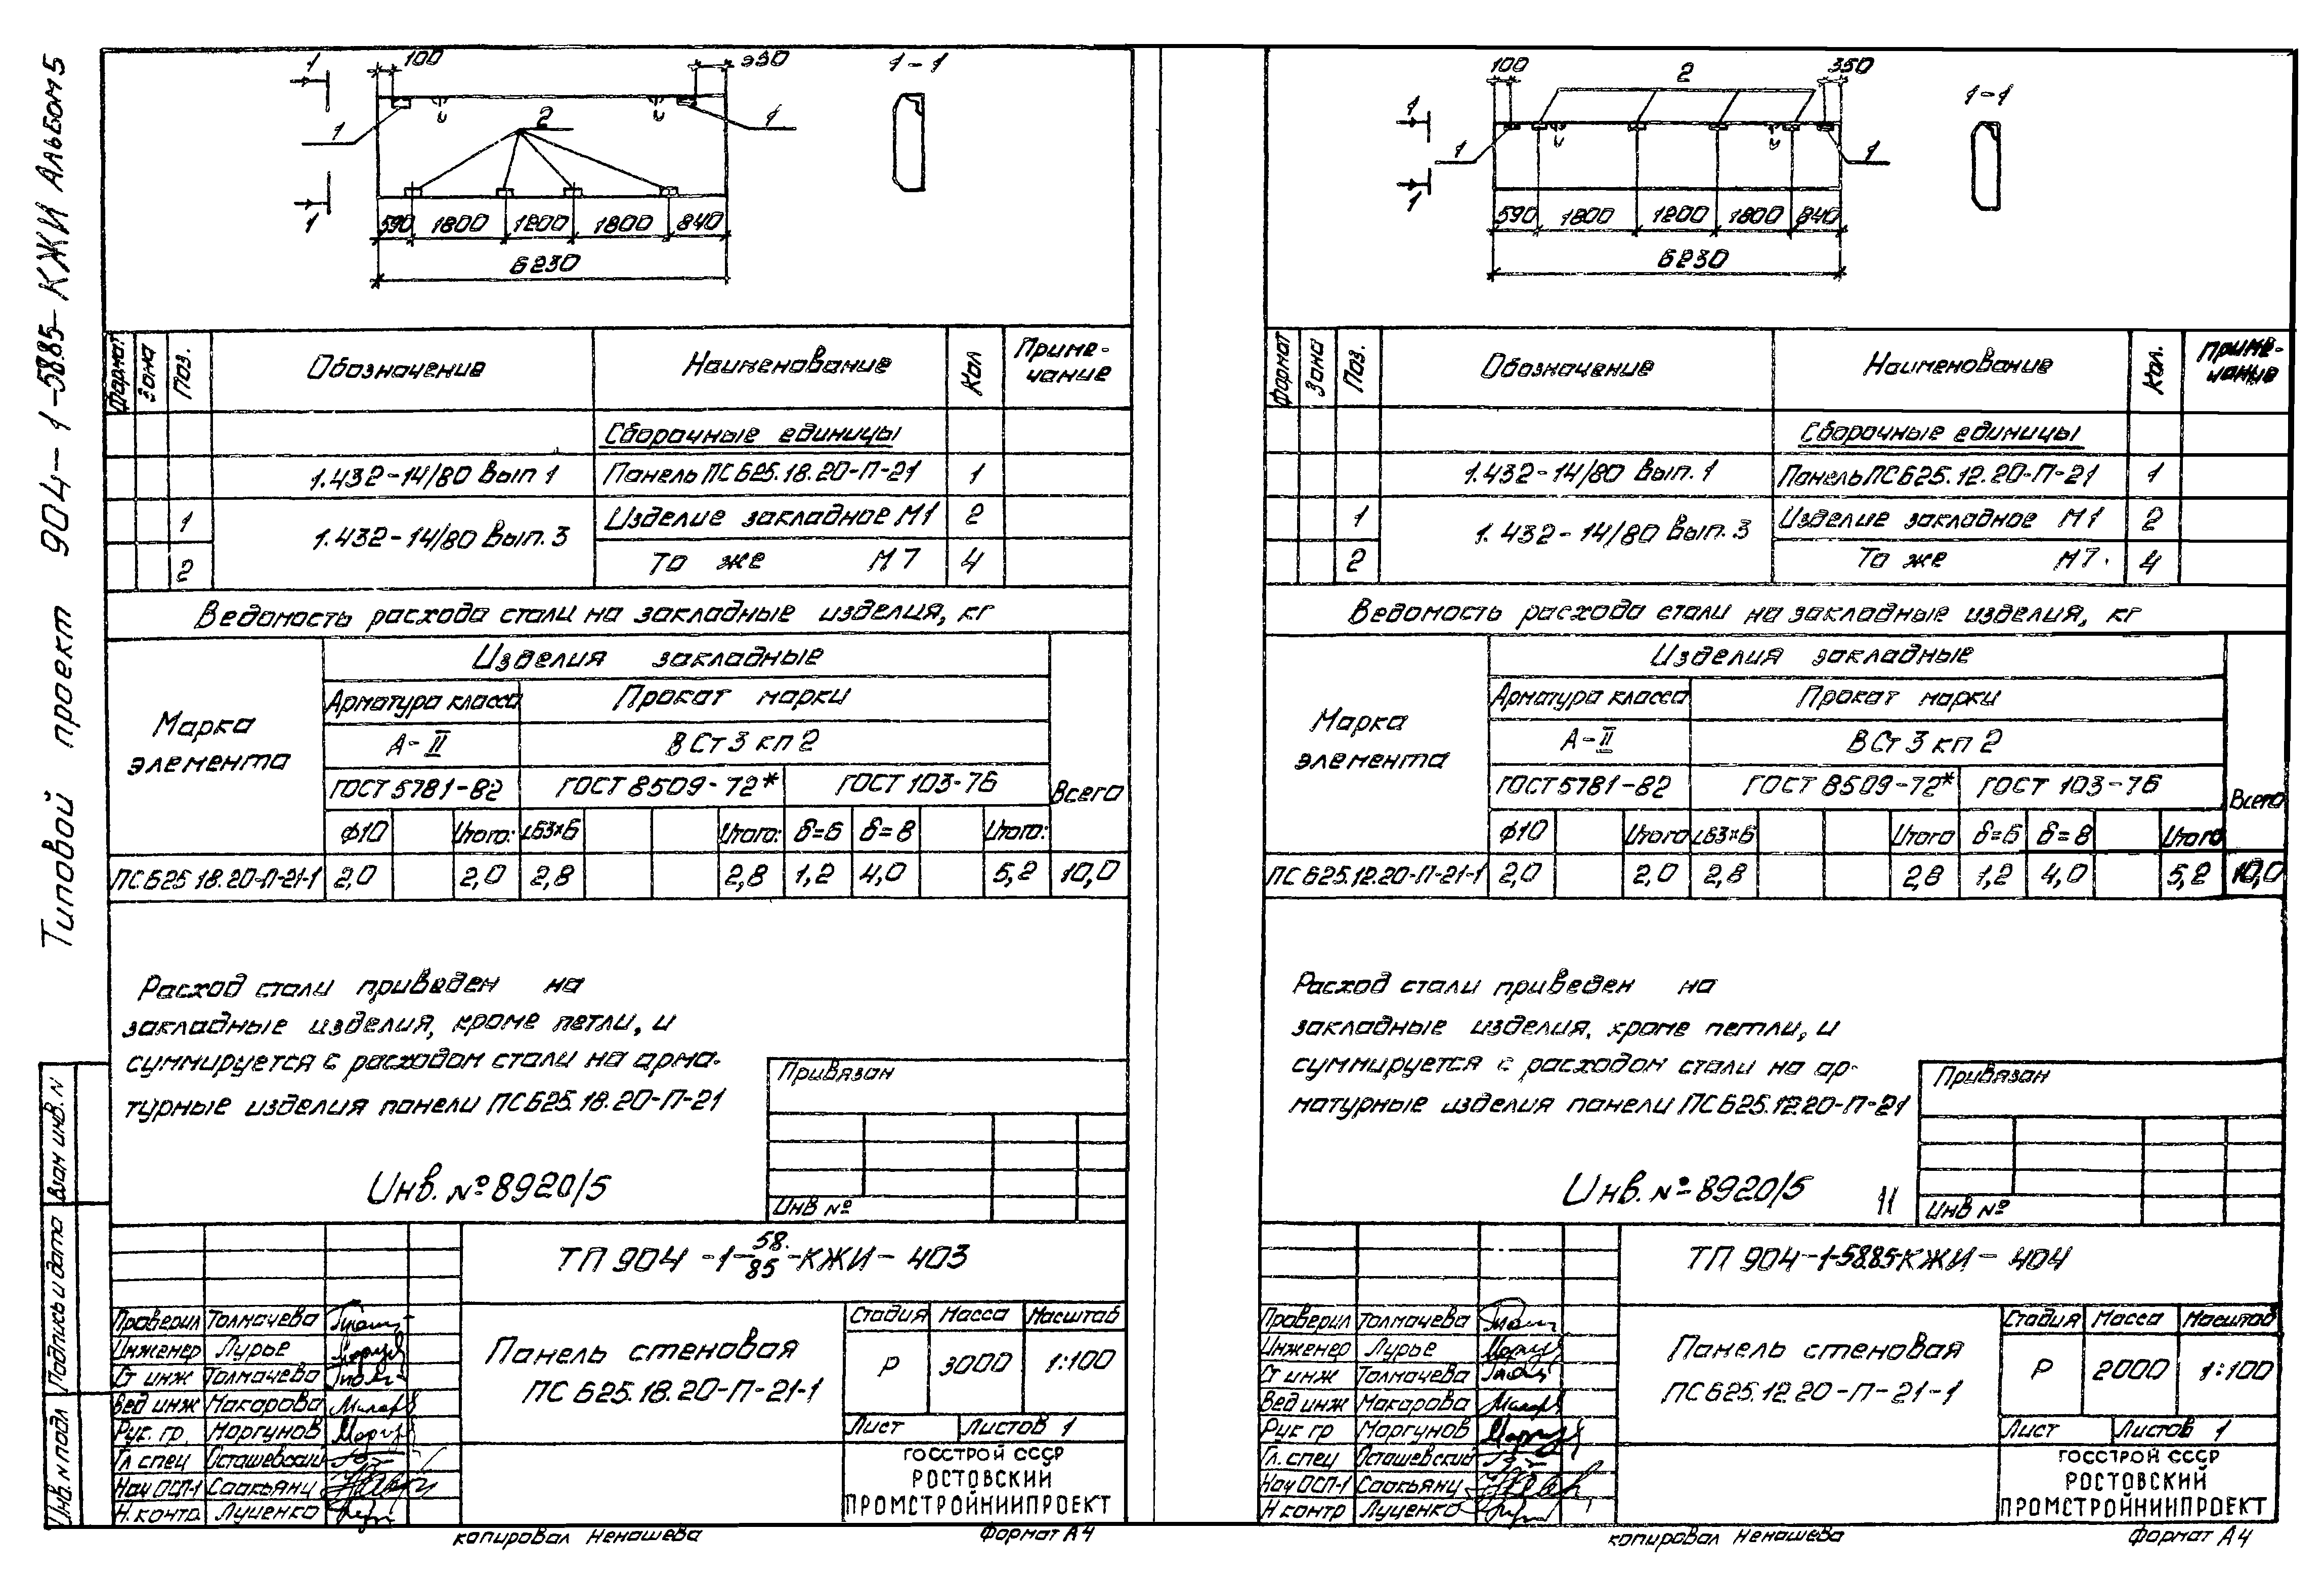 Типовой проект 904-1-58.85-КЖИ Альбом 5
1
100
350
1-1
1
2
1
1
590 1800 1200 1800 840
6230
Формат
Зона
Поз.
Обозначение
Наименование
Кол
Приме-
чание
Сборочные единицы
1.432-14/80 Вып 1 Панель ПС 625.18.20-П-21 1
1 1.432-14/80 Вып. 3 Изделие закладное М1 2
2 То же М7 4
Ведомость расхода стали на закладные изделия, кг
Марка
элемента
Изделия закладные
Арматура класса Прокат марки
А-II ВСт3кп2
ГОСТ 5781-82 ГОСТ 8509-72* ГОСТ 103-76 Всего
ф10 Итого: L63x6 Итого: δ=6 δ=8 Итого:
ПС 625 18.20-П-21-1 2,0 2,0 2,8 2,8 1,2 4,0 5,2 10,0
Расход стали приведен на
закладные изделия, кроме петли, и
суммируется с расходом стали на арма-
турные изделия панели ПС 625.18.20-П-21
Привязан
Инв №
Инв. № 8920/5
ТП 904-1-58.85-КЖИ-403
Проверил Толмачева
Инженер Лурье
Ст инж Толмачева
Вед инж Макарова
Рук. гр. Моргунов
Гл спец Осташевский
Нач ОСП-1 Саакьянц
Н. контр. Луценко
Панель стеновая
ПС 625.18.20-П-21-1
Стадия Масса Масштаб
Р 3000 1:100
Лист Листов 1
ГОССТРОЙ СССР
РОСТОВСКИЙ
ПРОМСТРОЙНИИПРОЕКТ
копировал Ненашева Формат А4
Взам инв. N
Подпись и дата
Инв. N подл
100
2
350
1-1
1
1
1
1
590 1800 1200 1800 840
6230
Формат
Зона
Поз.
Обозначение
Наименование
Кол.
Приме-
чание
Сборочные единицы
1.432-14/80 Вып. 1 Панель ПС 625.12.20-П-21 1
1 1.432-14/80 Вып. 3 Изделие закладное М1 2
2 То же М7. 4
Ведомость расхода стали на закладные изделия, кг
Марка
элемента
Изделия закладные
Арматура класса Прокат марки
А-II ВСт3кп2
ГОСТ 5781-82 ГОСТ 8509-72* ГОСТ 103-76 Всего
ф10 Итого L63x6 Итого δ=6 δ=8 Итого
ПС 625.12.20-П-21-1 2,0 2,0 2,8 2,8 1,2 4,0 5,2 10,0
Расход стали приведен на
закладные изделия, кроме петли, и
суммируется с расходом стали на ар-
матурные изделия панели ПС 625.12.20-П-21
Привязан
Инв №
Инв. № 8920/5 11
ТП 904-1-58.85-КЖИ-404
Проверил Толмачева
Инженер Лурье
Ст инж Толмачева
Вед инж Макарова
Рук гр Моргунов
Гл. спец Осташевский
Нач ОСП-1 Саакьянц
Н. контр Луценко
Панель стеновая
ПС 625.12.20-П-21-1
Стадия Масса Масштаб
Р 2000 1:100
Лист Листов 1
ГОССТРОЙ СССР
РОСТОВСКИЙ
ПРОМСТРОЙНИИПРОЕКТ
копировал Ненашева Формат А4